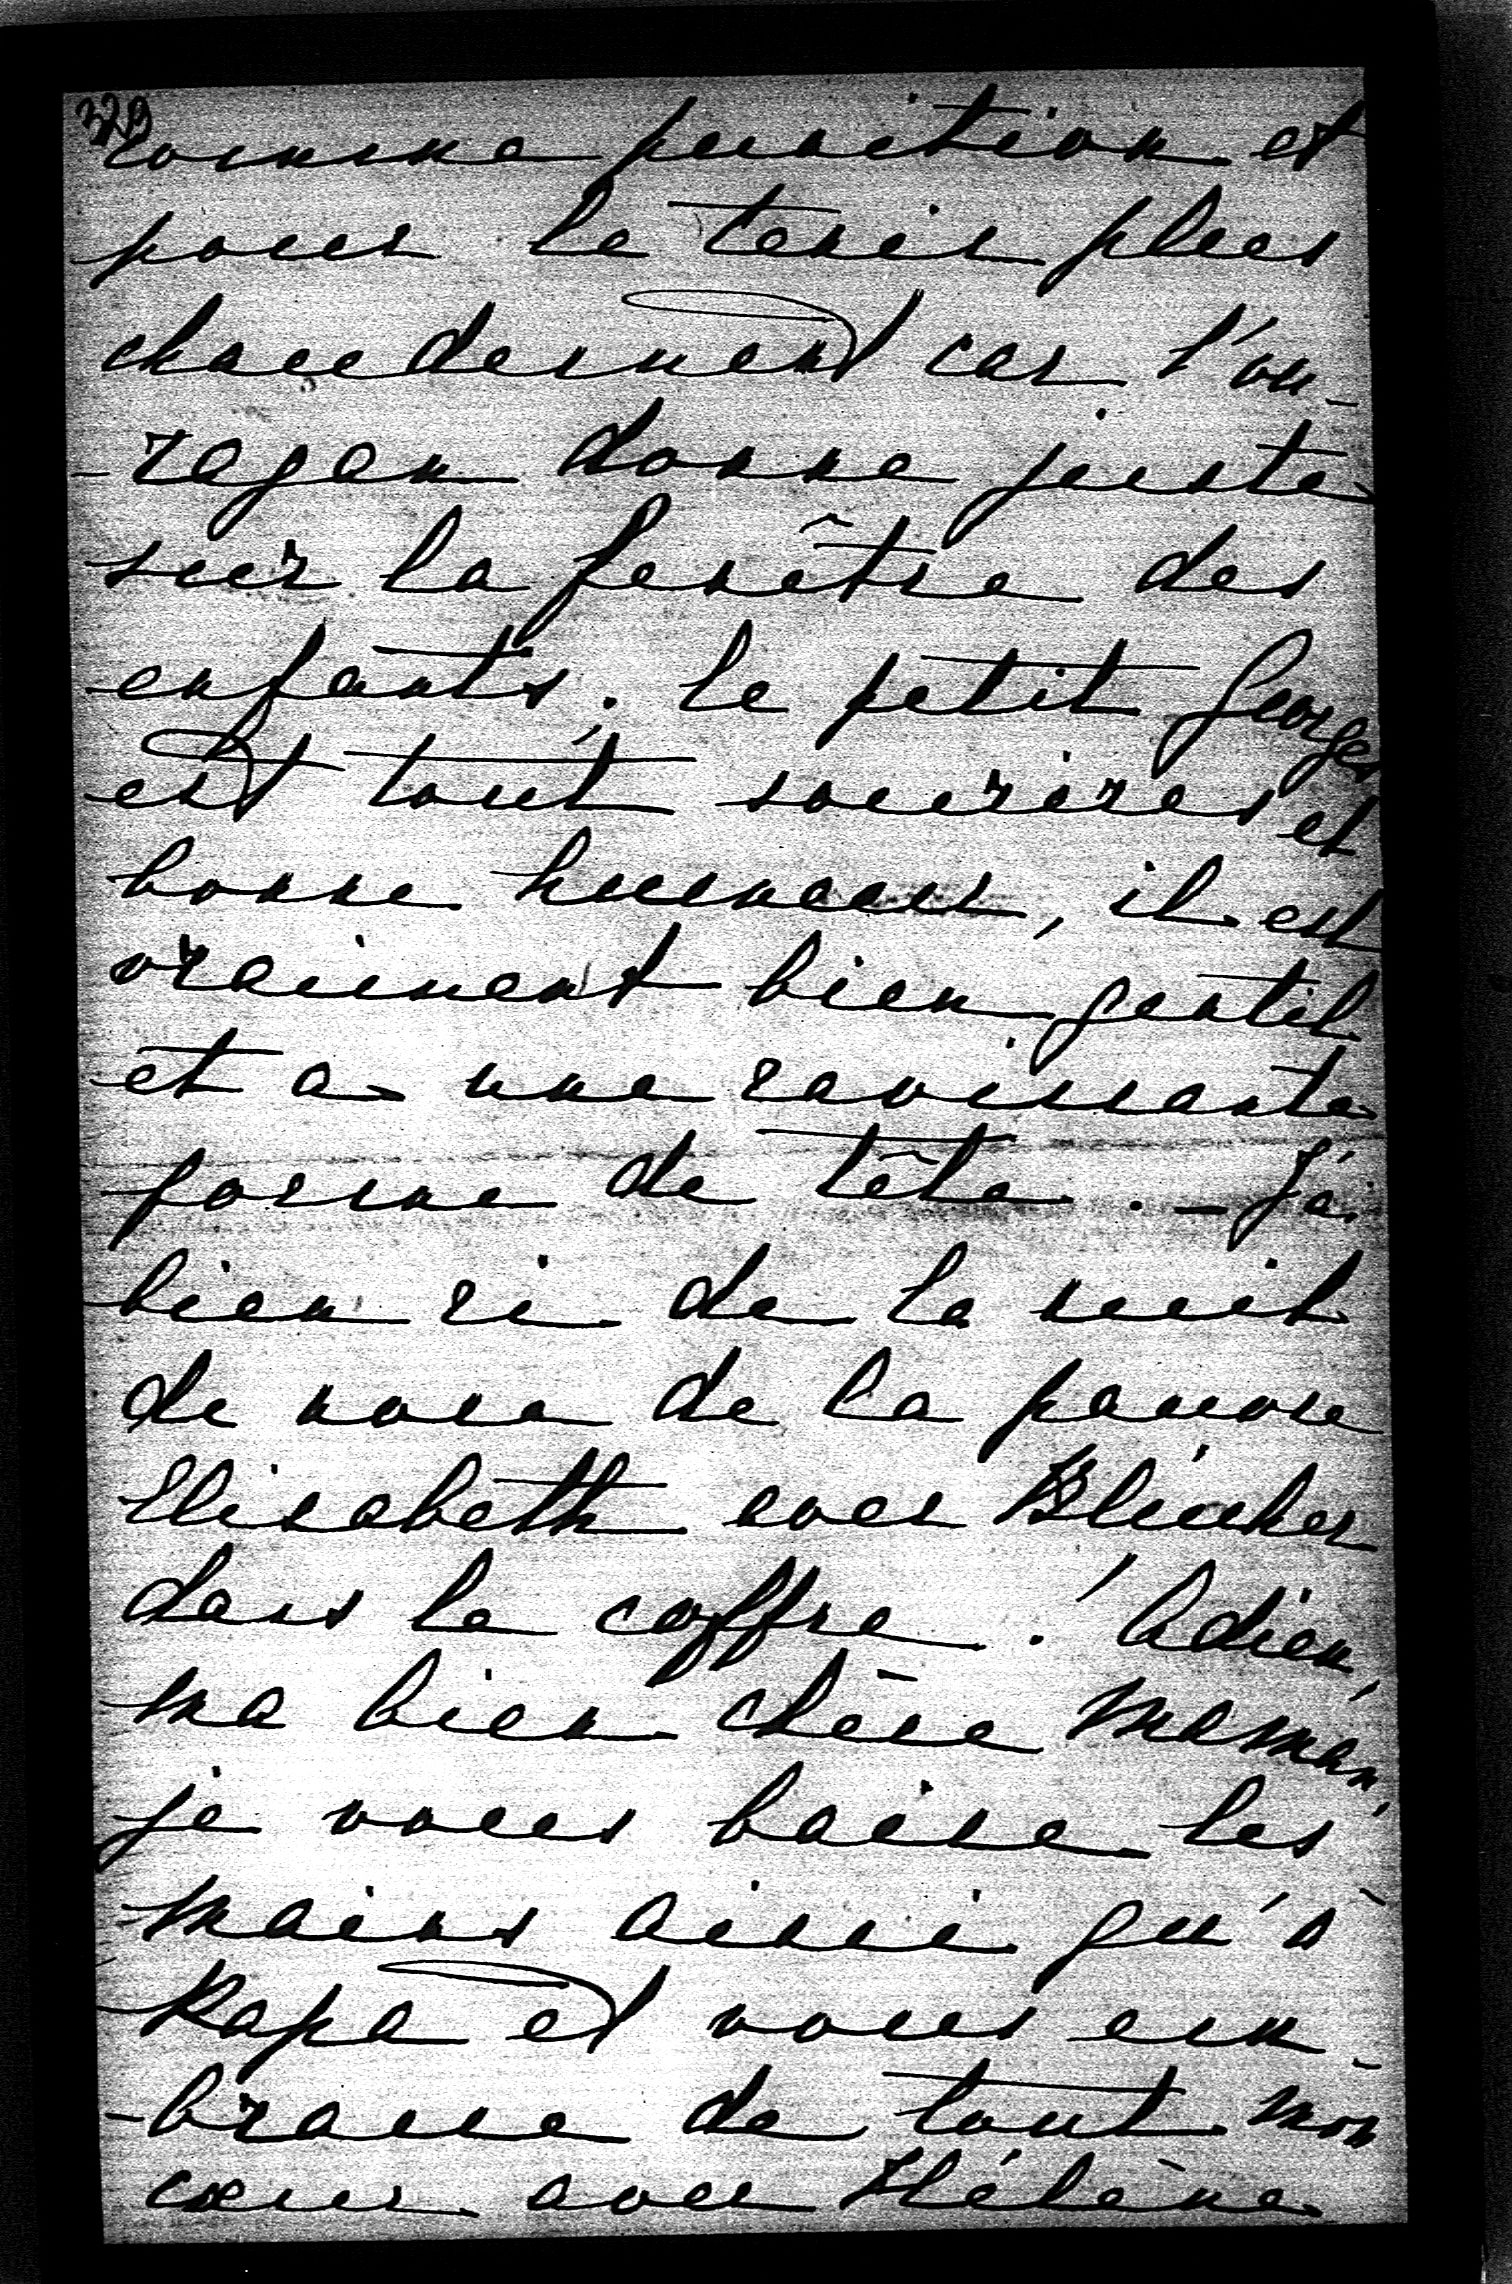 329
comme punition et
pour le tenir plus
chaudement car l'ou-
-ragan donne juste
sur la fenêtre des
enfants; le petit Georges
est tout sourires et
bonne humeur, il est
vraiment bien gentil
et a une ravissante
forme de tête. - J'ai
bien ri de la nuit
de noce de la pauvre
Elisabeth avec Blücher
dans le coffre! Adieu,
ma bien chère Maman,
je vous baise les
mains ainsi qu'à
Papa et vous em-
-brasse de tout mon
cœur avec Hélène